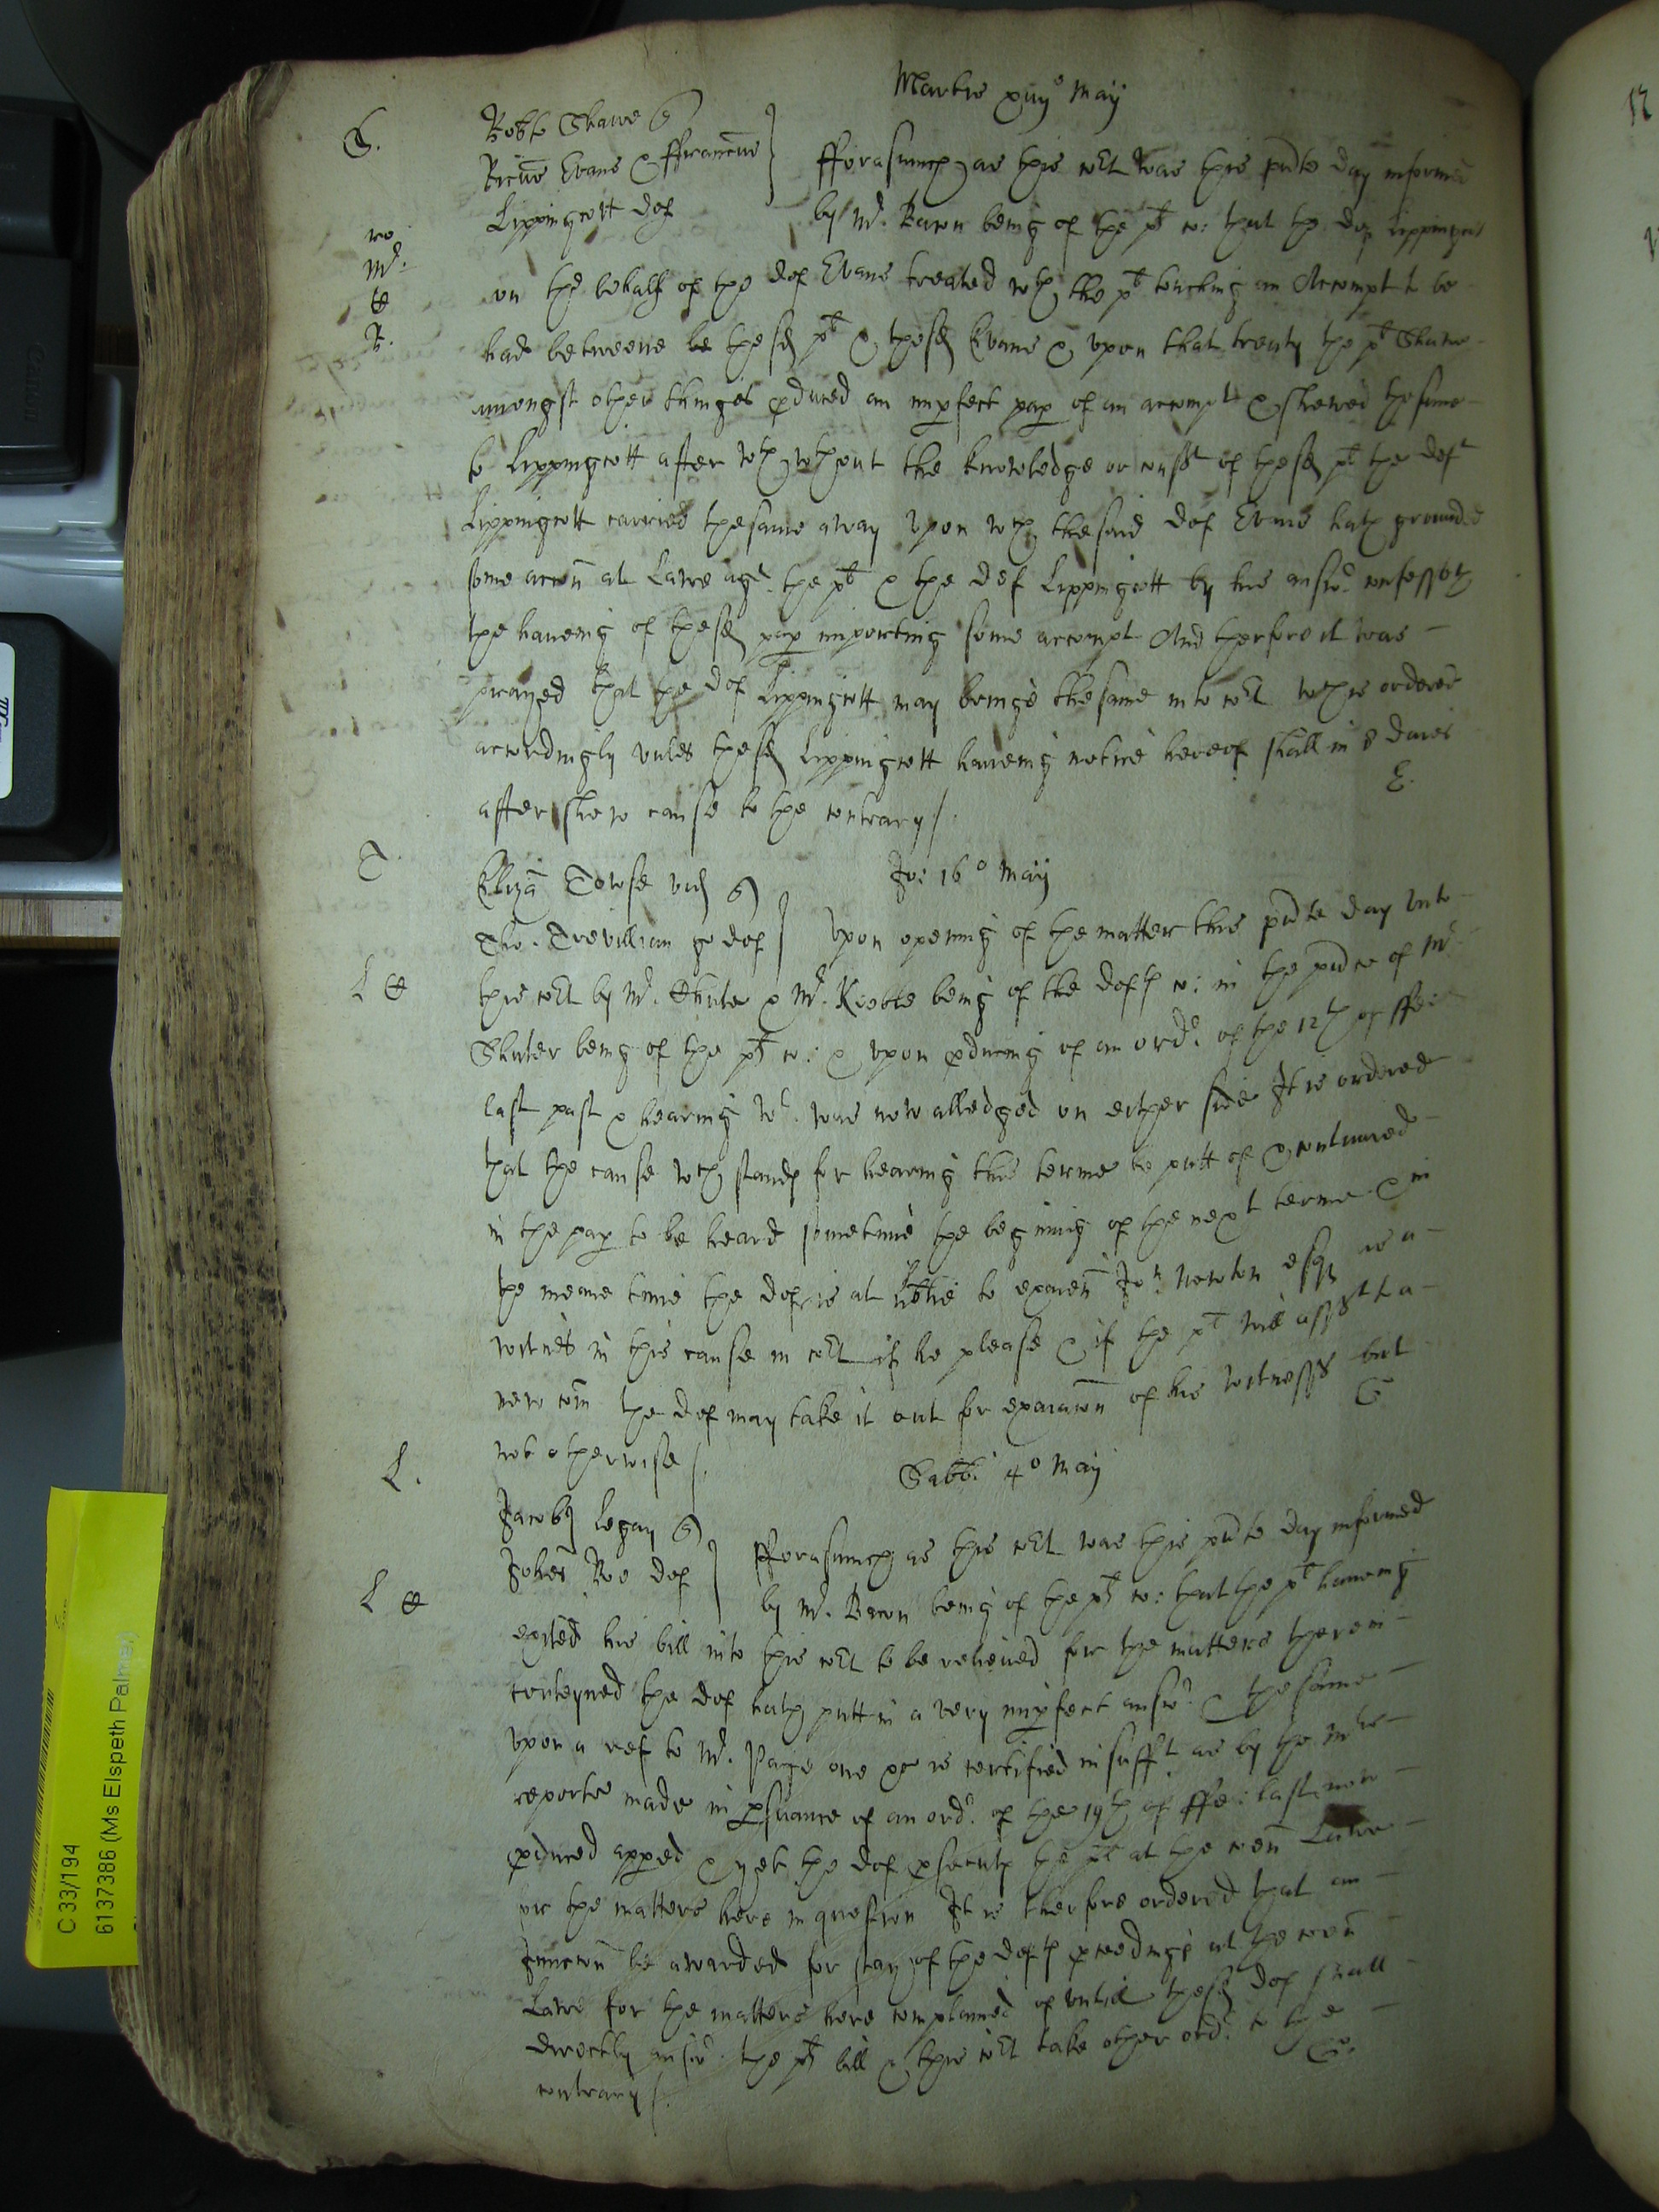 Martis xiijº Maij
S. Robto Shawe q
Ricus Evans & ffranciscus
Lippingcott def
fforasmuch as this cot was this pnte day informed
by Mr. Bacon being of the plt co: that the def Lippingcott
on the behalf of the def Evans treated wth the plt touching an Accompt to be
had betweene be the sd plt & the sd Evans & vpon that treaty the plt Shawe
amongst other thinges pduced an impfect pap of an accompt & shewed the same
to Lippingcott after wch wthout the knowledge or const of the sd plt the deft
Lippingcott carried the same away Vpon wch the said def Evans hath grounded
some accon at Lawe agt the plt & the def Lippingcott by his answr confesseth
the haveing of the sd pap importing some accompt And therfore it was
prayed that the def Lippingcott may bringe the same into cot wch is ordered
accordingly vnles the sd Lippingcott haveing notice hereof shall in 8 daies
after shew cause to the contrary /.
E.
T. Eliza Towse vid q
Tho. Trevillian go def
Jo: 16º Maij
Vpon opening of the matter this pnte day vnto
this cot by Mr. Chute & Mr. Keoble being of the defts co: in the pnce of Mr.
Shuter being of the plts co: & vpon pducing of an ordr of the 12th of ffe:
last past & hearing wt was now alledged on either side It is ordered
that the cause wch stands for hearing this terme be putt of & continued
in the pap to be heard sometime the begining of the next terme & in
the meane time the def is at libtie to examen Jon Newton esqr as a
witnes in this cause in cot if he please & if the plt will asst to a
new com the def may take it out for examacon of his witnesses but
not otherwise /.
G
L. Jacobus Legay q
Johes Roo def
Sabbi 4º Maij
fforasmuch as this cot was this pnte day informed
by Mr. Bacon being of the plts co: that the plt haveing
exited his bill into this cot to be relieued for the matters therein
conteyned the def hath putt in a very impfect answr & the same
vpon a ref to Mr. Page one &c is certified insufft as by the Mrs
reporte made in psuance of an ordr of the 19th of ffe: last now
pduced apped & yet the def psecuts the plt at the coen Lawe
for the matters here in question It is therfore ordered that an
Iniuncon be awarded for stay of the defts pceedings at the coen
Lawe for the matters here complained of vntill the sd def shall
directly answr the plts bill & this cot take other ordr to the
contrary /.
C 33/194
6137386 (Ms Elspeth Palmer)